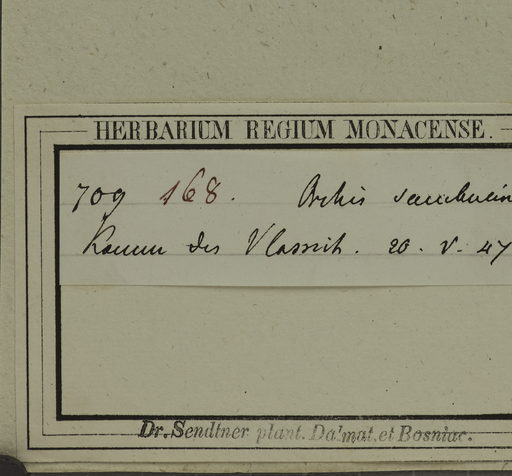 HERBARIUM REGIUM MONACENSE.
709 168. Orchis sambucin
Kamm des Vlassich. 20. V. 47
Dr. Sendtner plant. Dalmat. et Bosniac.